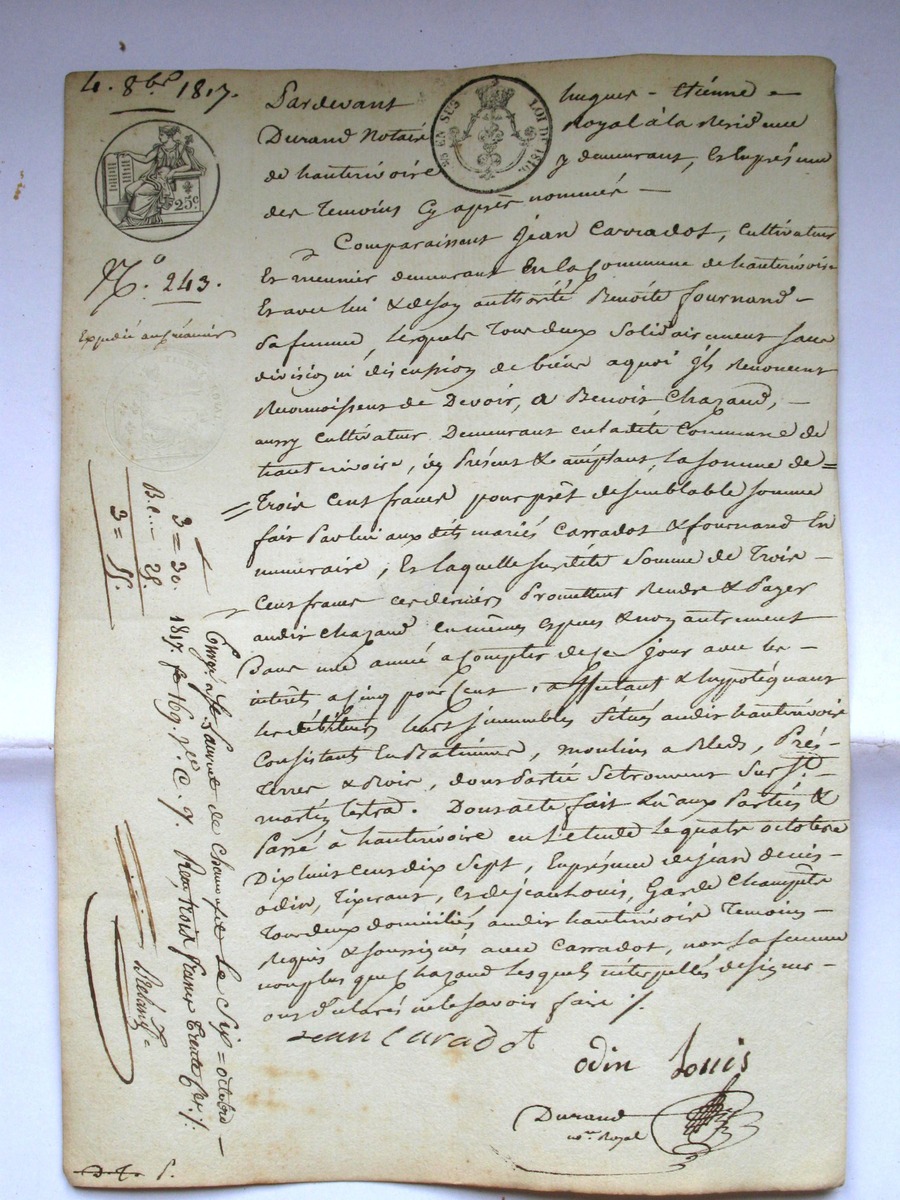 4. 8bre 1817.
Pardevant hugues - Etiénne
Durand Notaire Royal à la Residence
de hauterivoire y demeurant, Et En présence
des Temoins Cy après nommés —
Comparaissent Jean Carradot, Cultivateur
Et meunier demeurant En la Commune de hauterivoire
Et avec lui & de son authorité Benoite fournand -
Sa femme, Lesquels Tous deux Solidairement sans
division ni discussion de biens aquoi Ils Renoncent
Reconnoissent de Devoir, a Benoit Chazaud, —
aussy Cultivateur Demeurant en la dite Commune de
hauterivoire, icy Présent & acceptant, la somme de =
Trois Cent francs pour prêt de semblable somme
fait Par lui aux dits mariés Carradot & fournand En
numeraire, Et laquelle susditte Somme de Trois -
Cent francs ces derniers Promettent Rendre & Payer
audit Chazaud en mêmes Espèces & non autrement
Dans une année a Compter de Ce jour avec les -
intérêts a Cinq pour Cent, affectant & hypotéquant
les débiteurs leurs immeubles Situés audit hauterivoire
Consistants En Batiments, moulins a Bleds, Prés -
Terres & Bois, dont Partie Se trouvent Sur St.
martin lestra. Dont acte fait Lu aux Parties &
Passé à hauterivoire en L'etude Le quatre octobre
Dix huit Cent dix Sept, En présence de jean denis
odin, Tixerant, Et de jean Louis, Garde Champêtre
Tous deux domiciliés audit hauterivoire Temoins -
Requis & soussignés avec Carradot, non Sa femme
non plus que Chazaud Lesquels interpellés de signer -
ont déclarés ne le savoir faire ./.
Jean Caradot
odin Louis
Durand
nore Royal
EN SUS
LOI DE 1816.
25c
No. 243.
Expédié au créancier
3 = 30.
B.c... - 25.
3 = 55.
Enregé. à St. Laurent de Chamouset Le Six = octobre —
1817. fo 169. Ro. c. 9. Reçu trois francs trente Cmes ./.
D. T. P.